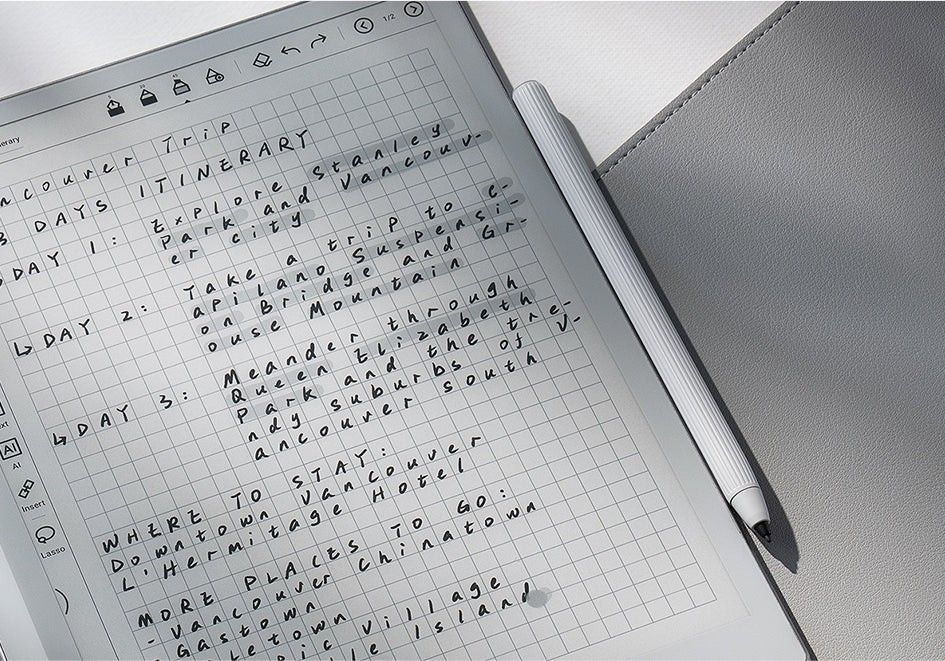 1/2
erary
ncouver Trip
3 DAYS ITINERARY
DAY 1: Explore Stanley
Park and Vancouv-
er city
DAY 2: Take a trip to c-
apilano Suspensi-
on Bridge and Gr-
ouse Mountain
DAY 3: Meander through
Queen Elizabeth
Park and the tre-
ndy suburbs of V-
ancouver south
WHERE TO STAY:
Downtown Vancouver
L'Hermitage Hotel
MORE PLACES TO GO:
- Vancouver Chinatown
Gastown
letown
ic village
le Island
xt
AI
AI
Insert
Lasso